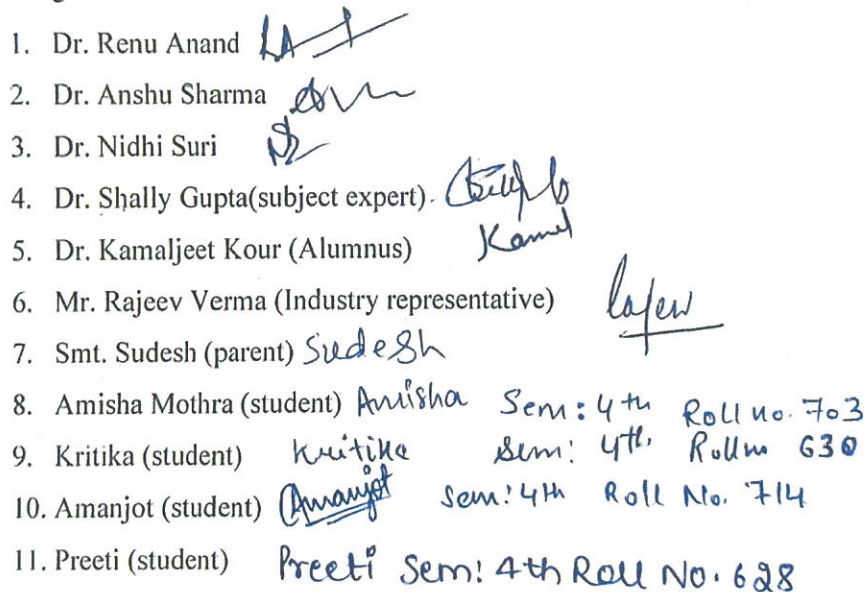 1. Dr. Renu Anand
2. Dr. Anshu Sharma
3. Dr. Nidhi Suri
4. Dr. Shally Gupta(subject expert).
5. Dr. Kamaljeet Kour (Alumnus) Kamal
6. Mr. Rajeev Verma (Industry representative)
7. Smt. Sudesh (parent) Sudesh
8. Amisha Mothra (student) Amisha Sem: 4th Roll no. 703
9. Kritika (student) Kritika Sem: 4th. Roll no 630
10. Amanjot (student) Amanjot Sem: 4th Roll No. 714
11. Preeti (student) Preeti Sem: 4th Roll No. 628